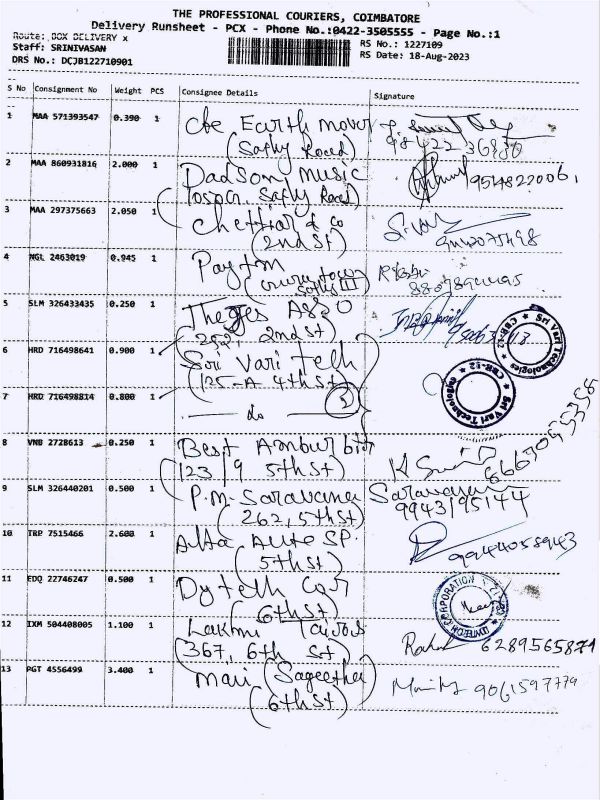 THE PROFESSIONAL COURIERS, COIMBATORE
Delivery Runsheet - PCX - Phone No.:0422-3505555 - Page No.:1
Route: BOX DELIVERY x
Staff: SRINIVASAN
DRS No.: DCJB122710901
RS No.: 1227109
RS Date: 18-Aug-2023
S No Consignment No Weight PCS Consignee Details Signature
1 MAA 571393547 0.390 1 Cbe Earth mover
(Sathy Road)
2 MAA 860931816 2.000 1 Dadsons Music
Sathy Road)
3 MAA 297375663 2.050 1 Chettiar & Co
(2nd St)
4 NGL 2463019 0.945 1 Paytm
5 SLM 326433435 0.250 1
2nd St)
6 HRD 716498641 0.900 1 Sri Vari Tech
(25-A 4th St)
7 HRD 716498814 0.800 1 — do — 2
Sri Vari Technologies
CBE-12
Sri Vari Technologies
CBE-12
8 VNB 2728613 0.250 1 Best
(123/9 5th St)
9 SLM 326440201 0.500 1 P.M. Saravana
(262, 5th St)
Saravanan
9943195144
10 TRP 7515466 2.600 1 Alta Auto SP.
(5th St)
11 EDQ 22746247 0.500 1 Dytech Cor
(6th St)
DYTECH CORPORATION
12 IXM 504408005 1.100 1 Lakshmi
(367, 6th St)
6289565871
13 PGT 4556499 3.400 1 Mari (Sageetha)
(6th St)
9061597779